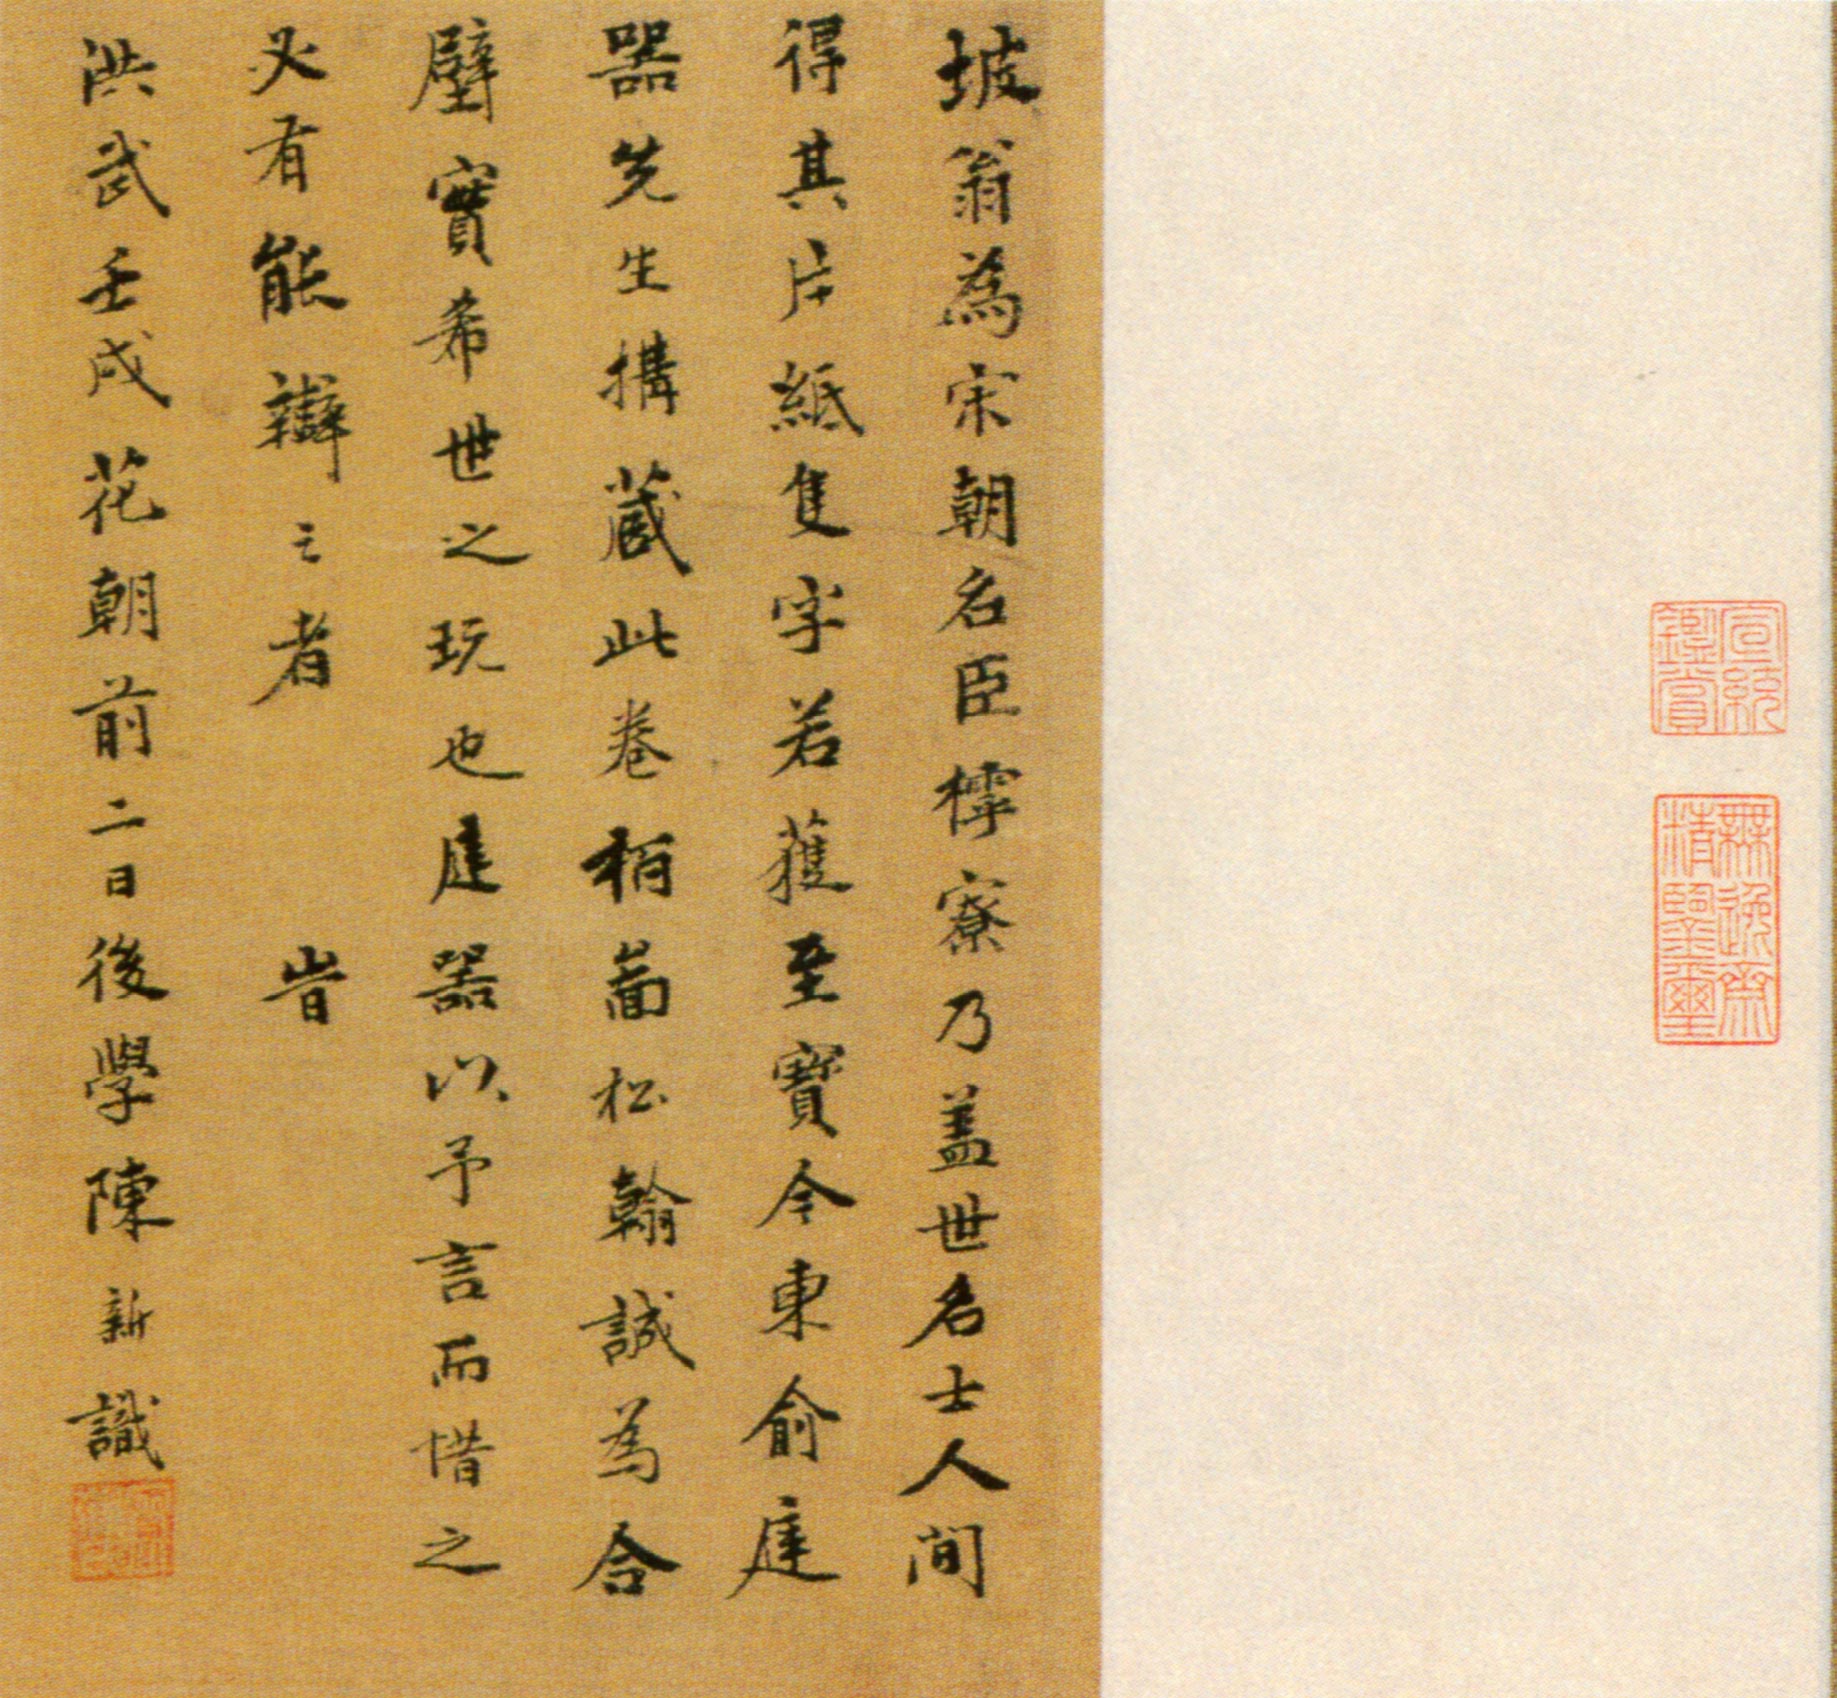 坡翁為宋朝名臣樗寮乃盖世名士人間
得其片紙隻字若獲至寶今東俞庭
器先生搆蔵此卷栢啚松翰誠為合
璧實希世之玩也庭器以予言而惜之
必有能辯之者 旹
洪武壬戌花朝前二日後學陳新識
宣統鑑賞
無逸齋精鑒璽